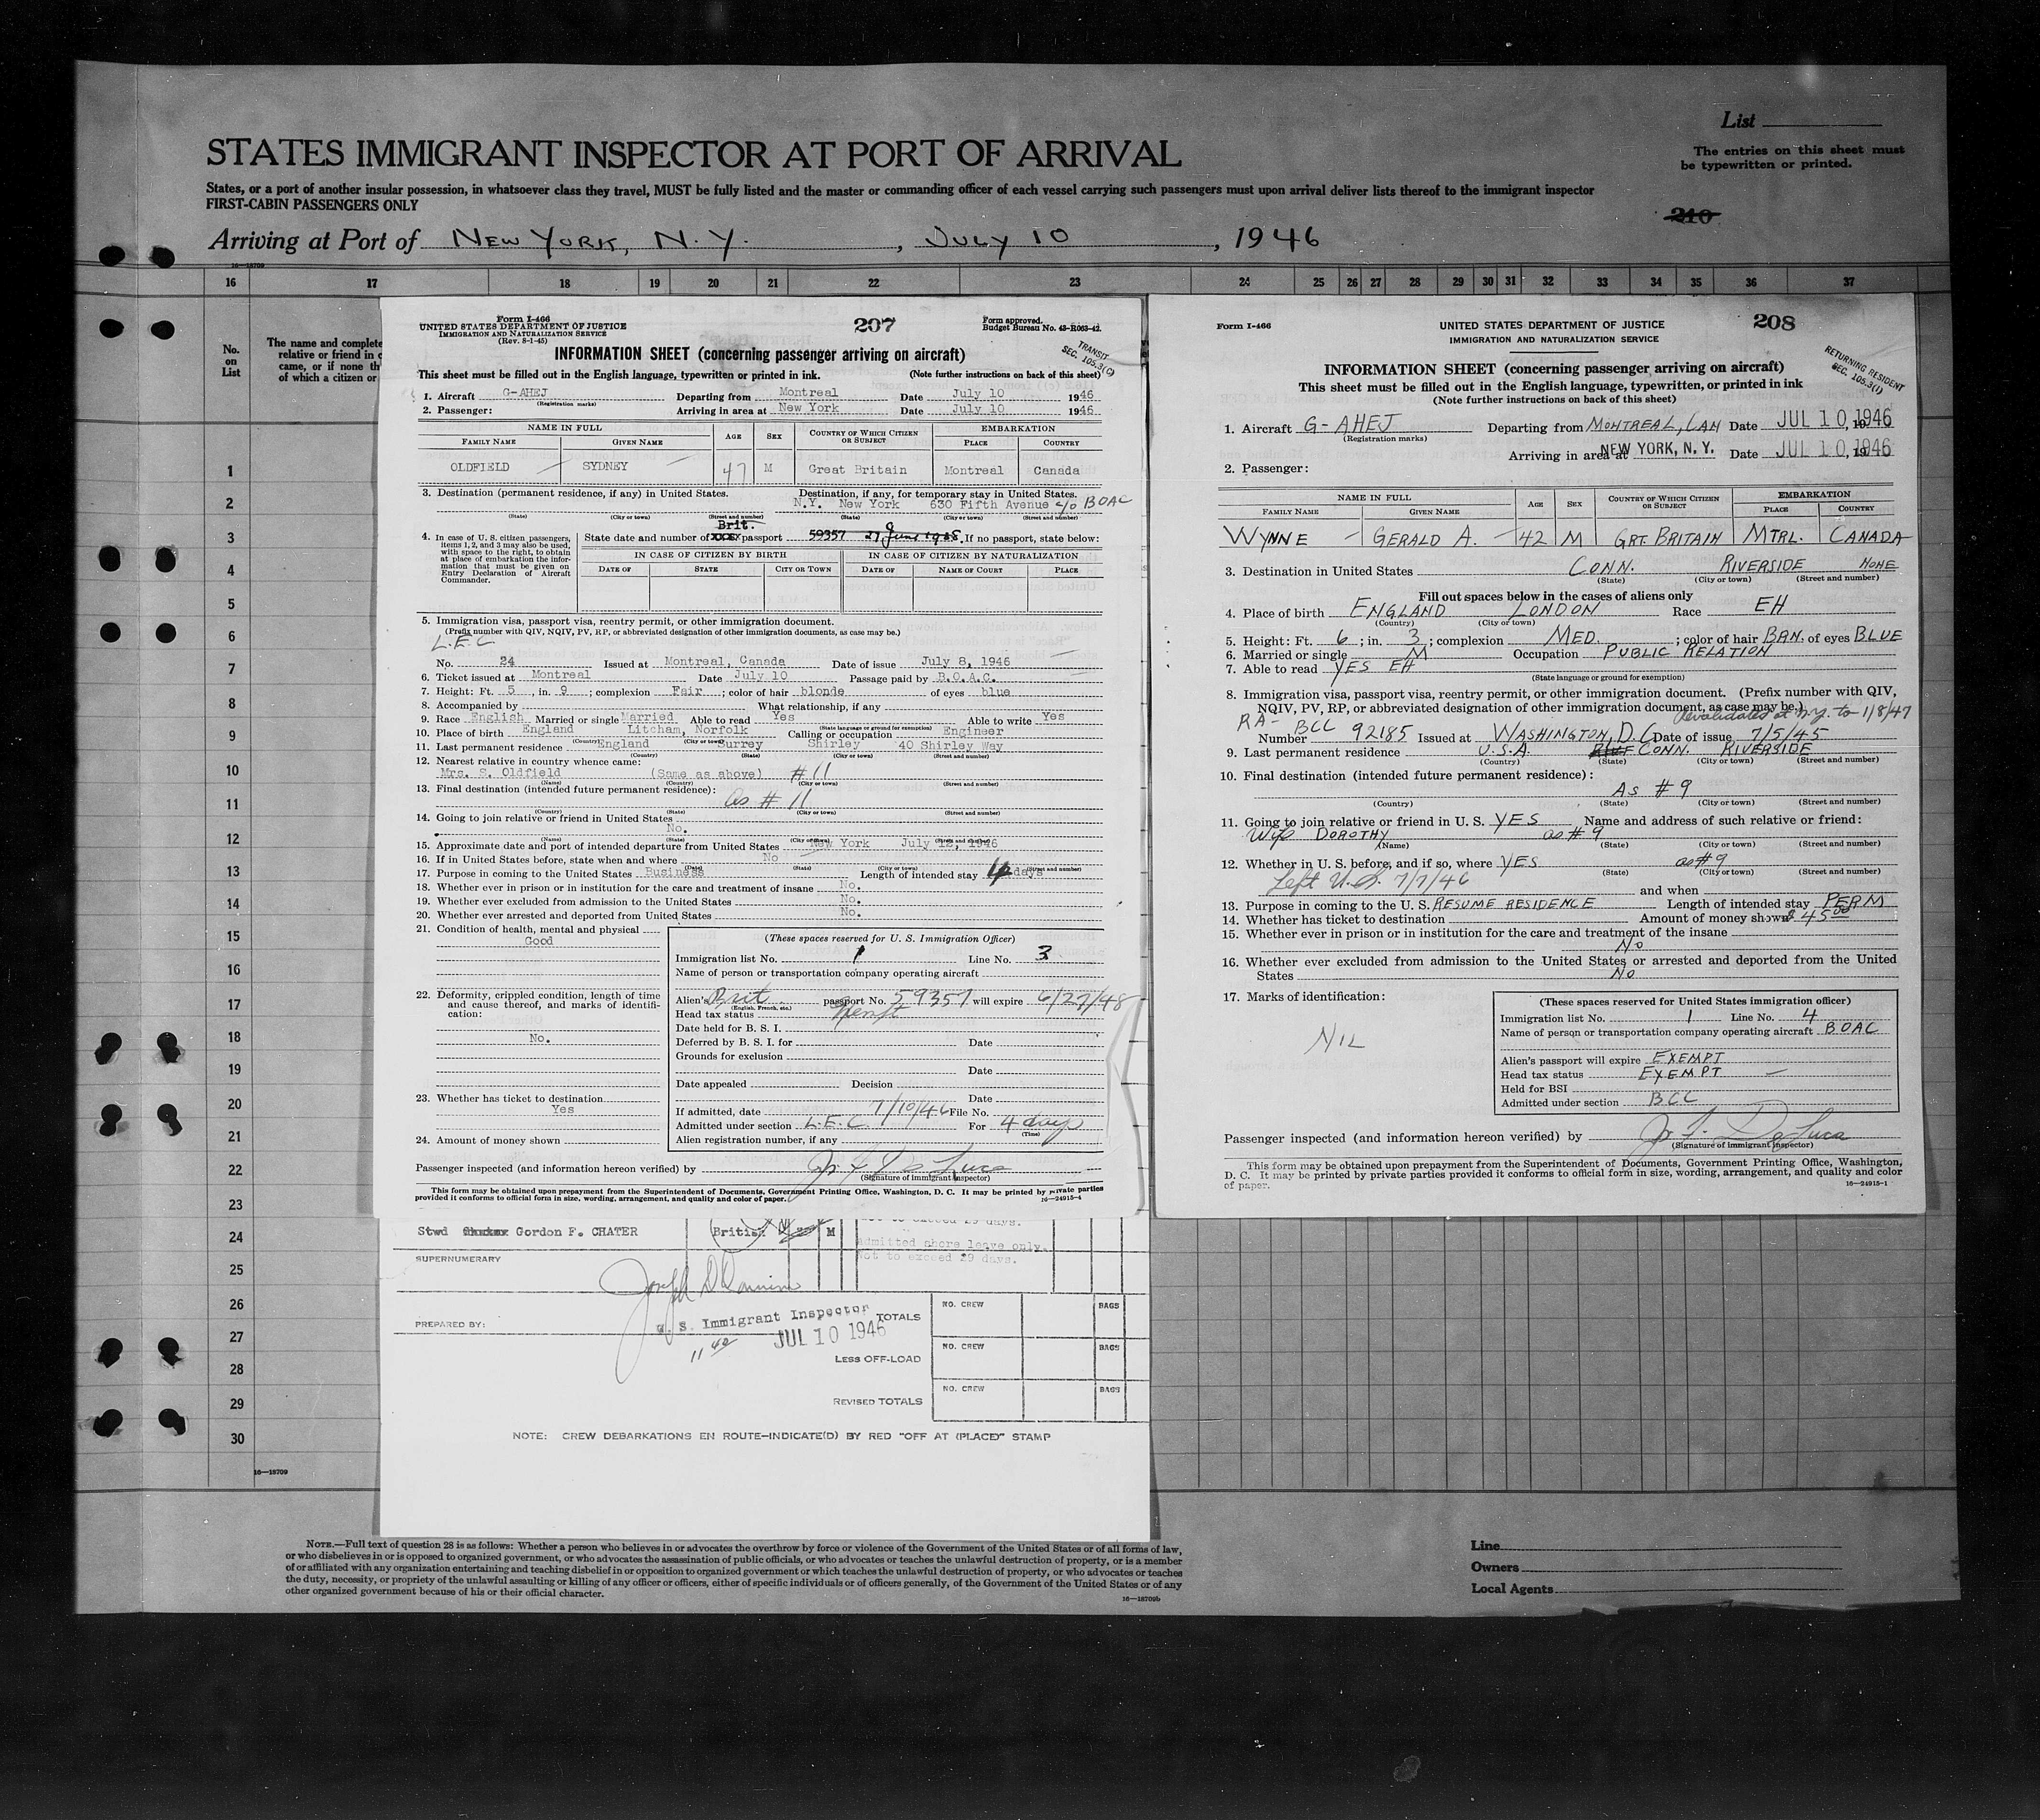 List
STATES IMMIGRANT INSPECTOR AT PORT OF ARRIVAL
The entries on this sheet must
be typewritten or printed.
States, or a port of another insular possession, in whatsoever class they travel, MUST be fully listed and the master or commanding officer of each vessel carrying such passengers must upon arrival deliver lists thereof to the immigrant inspector
FIRST-CABIN PASSENGERS ONLY
210
Arriving at Port of NEW YORK, N.Y. , JULY 10 , 1946
16—18709
16 17 18 19 20 21 22 23 24 25 26 27 28 29 30 31 32 33 34 35 36 37
No.
on
List
The name and complete
relative or friend in c
came, or if none th
of which a citizen or
1
2
3
4
5
6
7
8
9
10
11
12
13
14
15
16
17
18
19
20
21
22
23
24
25
26
27
28
29
30
16—18709
Form I-466
UNITED STATES DEPARTMENT OF JUSTICE
IMMIGRATION AND NATURALIZATION SERVICE
(Rev. 8-1-45)
207
Form approved.
Budget Bureau No. 43-R063-42.
TRANSIT
SEC. 105.3(c)
INFORMATION SHEET (concerning passenger arriving on aircraft)
This sheet must be filled out in the English language, typewritten or printed in ink. (Note further instructions on back of this sheet)
1. Aircraft G-AHEJ Departing from Montreal Date July 10 1946
(Registration marks)
2. Passenger: Arriving in area at New York Date July 10 1946
NAME IN FULL AGE SEX COUNTRY OF WHICH CITIZEN OR SUBJECT EMBARKATION
FAMILY NAME GIVEN NAME PLACE COUNTRY
OLDFIELD SYDNEY 47 M Great Britain Montreal Canada
3. Destination (permanent residence, if any) in United States. Destination, if any, for temporary stay in United States.
N.Y. New York 630 Fifth Avenue c/o BOAC
(State) (City or town) (Street and number) (State) (City or town) (Street and number)
Brit.
4. In case of U. S. citizen passengers, items 1, 2, and 3 may also be used, with space to the right, to obtain at place of embarkation the information that must be given on Entry Declaration of Aircraft Commander.
State date and number of xxxx passport 59357 27 June 1948. If no passport, state below:
IN CASE OF CITIZEN BY BIRTH IN CASE OF CITIZEN BY NATURALIZATION
DATE OF STATE CITY OR TOWN DATE OF NAME OF COURT PLACE
5. Immigration visa, passport visa, reentry permit, or other immigration document.
(Prefix number with QIV, NQIV, PV, RP, or abbreviated designation of other immigration documents, as case may be.)
L.E.C
No. 24 Issued at Montreal, Canada Date of issue July 8, 1946
6. Ticket issued at Montreal Date July 10 Passage paid by B.O.A.C.
7. Height: Ft. 5, in. 9; complexion Fair; color of hair blonde of eyes blue
8. Accompanied by What relationship, if any
9. Race English Married or single Married Able to read Yes Able to write Yes
(State language or ground for exemption)
10. Place of birth England Litcham, Norfolk Calling or occupation Engineer
(Country) (City or town)
11. Last permanent residence England Surrey Shirley 40 Shirley Way
(Country) (State) (City or town) (Street and number)
12. Nearest relative in country whence came:
Mrs. S. Oldfield (Same as above) #11
(Name) (Country) (City or town) (Street and number)
13. Final destination (intended future permanent residence):
As # 11
(Country) (State) (City or town) (Street and number)
14. Going to join relative or friend in United States
No.
(Name) (City or town) (Street and number)
15. Approximate date and port of intended departure from United States New York July 12, 1946
16. If in United States before, state when and where No
(Date) (State) (City or town) (Street and number)
17. Purpose in coming to the United States Business Length of intended stay 4 days
18. Whether ever in prison or in institution for the care and treatment of insane No.
19. Whether ever excluded from admission to the United States No.
20. Whether ever arrested and deported from United States No.
21. Condition of health, mental and physical
Good
22. Deformity, crippled condition, length of time and cause thereof, and marks of identification:
No.
23. Whether has ticket to destination
Yes
24. Amount of money shown
(These spaces reserved for U. S. Immigration Officer)
Immigration list No. 1 Line No. 3
Name of person or transportation company operating aircraft
Alien's Brit. passport No. 59357 will expire 6/27/48
(English, French, etc.)
Head tax status Xempt
Date held for B. S. I.
Deferred by B. S. I. for Date
Grounds for exclusion
Date
Date appealed Decision
Date
If admitted, date 7/10/46 File No.
Admitted under section L.E.C. For 4 days
(Time)
Alien registration number, if any
Passenger inspected (and information hereon verified) by
(Signature of immigrant inspector)
This form may be obtained upon prepayment from the Superintendent of Documents, Government Printing Office, Washington, D. C. It may be printed by private parties
provided it conforms to official form in size, wording, arrangement, and quality and color of paper. 16—24915-4
Stwd Gordon F. CHATER British M
not to exceed 29 days.
admitted shore leave only.
Not to exceed 29 days.
SUPERNUMERARY
PREPARED BY:
U. S. Immigrant Inspector
JUL 10 1946
11 40
TOTALS NO. CREW BAGS
LESS OFF-LOAD NO. CREW BAGS
REVISED TOTALS NO. CREW BAGS
NOTE: CREW DEBARKATIONS EN ROUTE—INDICATE(D) BY RED "OFF AT (PLACE)" STAMP
Form I-466
UNITED STATES DEPARTMENT OF JUSTICE
IMMIGRATION AND NATURALIZATION SERVICE
208
RETURNING RESIDENT
SEC. 105.3(1)
INFORMATION SHEET (concerning passenger arriving on aircraft)
This sheet must be filled out in the English language, typewritten, or printed in ink
(Note further instructions on back of this sheet)
1. Aircraft G-AHEJ Departing from MONTREAL, CAN Date JUL 10 1946
(Registration marks)
Arriving in area at NEW YORK, N. Y. Date JUL 10 1946
2. Passenger:
NAME IN FULL AGE SEX COUNTRY OF WHICH CITIZEN OR SUBJECT EMBARKATION
FAMILY NAME GIVEN NAME PLACE COUNTRY
WYNNE GERALD A. 42 M GRT. BRITAIN MTRL. CANADA
3. Destination in United States CONN. RIVERSIDE HOME
(State) (City or town) (Street and number)
Fill out spaces below in the cases of aliens only
4. Place of birth ENGLAND LONDON Race EH
(Country) (City or town)
5. Height: Ft. 6; in. 3; complexion MED.; color of hair BRN. of eyes BLUE
6. Married or single M Occupation PUBLIC RELATION
7. Able to read YES EH
(State language or ground for exemption)
8. Immigration visa, passport visa, reentry permit, or other immigration document. (Prefix number with QIV,
NQIV, PV, RP, or abbreviated designation of other immigration document, as case may be.)
Revalidated at N.Y. to 1/8/47
RA-
Number BCC 92185 Issued at WASHINGTON, D.C. Date of issue 7/5/45
9. Last permanent residence U.S.A. CONN. RIVERSIDE
(Country) (State) (City or town) (Street and number)
10. Final destination (intended future permanent residence):
As #9
(Country) (State) (City or town) (Street and number)
11. Going to join relative or friend in U. S. YES Name and address of such relative or friend:
Wife DOROTHY as #9
(Name) (State) (City or town) (Street and number)
12. Whether in U. S. before, and if so, where YES as #9
(State) (City or town) (Street and number)
Left U.S. 7/7/46 and when
13. Purpose in coming to the U. S. RESUME RESIDENCE Length of intended stay PERM
14. Whether has ticket to destination Amount of money shown $45.00
15. Whether ever in prison or in institution for the care and treatment of the insane
No
16. Whether ever excluded from admission to the United States or arrested and deported from the United
States No
17. Marks of identification:
NIL
(These spaces reserved for United States immigration officer)
Immigration list No. 1 Line No. 4
Name of person or transportation company operating aircraft BOAC
Alien's passport will expire EXEMPT
Head tax status EXEMPT
Held for BSI
Admitted under section BCC
Passenger inspected (and information hereon verified) by
(Signature of immigrant inspector)
This form may be obtained upon prepayment from the Superintendent of Documents, Government Printing Office, Washington,
D. C. It may be printed by private parties provided it conforms to official form in size, wording, arrangement, and quality and color
of paper. 16—24915-1
NOTE.—Full text of question 28 is as follows: Whether a person who believes in or advocates the overthrow by force or violence of the Government of the United States or of all forms of law,
or who disbelieves in or is opposed to organized government, or who advocates the assassination of public officials, or who advocates or teaches the unlawful destruction of property, or is a member
of or affiliated with any organization entertaining and teaching disbelief in or opposition to organized government or which teaches the unlawful destruction of property, or who advocates or teaches
the duty, necessity, or propriety of the unlawful assaulting or killing of any officer or officers, either of specific individuals or of officers generally, of the Government of the United States or of any
other organized government because of his or their official character.
16—18709b
Line
Owners
Local Agents